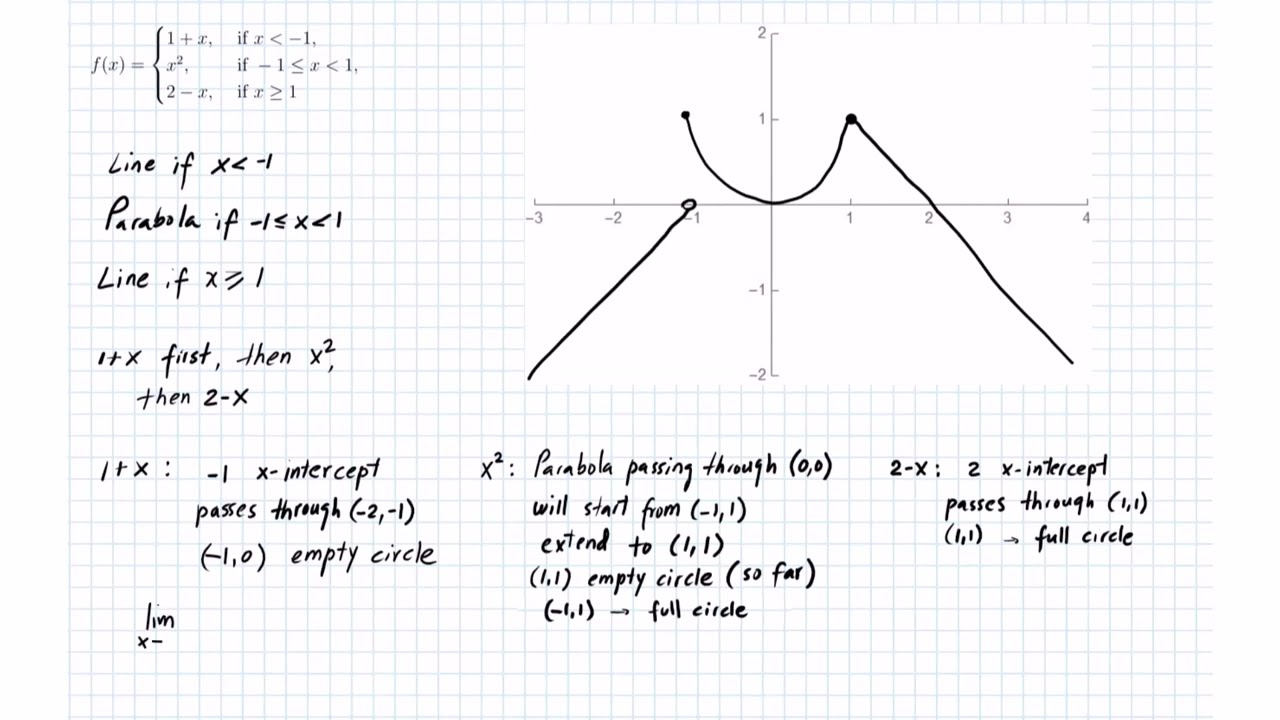 f(x) = { 1 + x, if x < −1,
x², if −1 ≤ x < 1,
2 − x, if x ≥ 1
Line if x < -1
Parabola if -1 ≤ x < 1
Line if x ⩾ 1
1+x first, then x²,
then 2-x
2
1
-1
-2
-3 -2 -1 1 2 3 4
1+x : -1 x-intercept
passes through (-2,-1)
(-1,0) empty circle
x² : Parabola passing through (0,0)
will start from (-1,1)
extend to (1,1)
(1,1) empty circle (so far)
(-1,1) → full circle
2-x : 2 x-intercept
passes through (1,1)
(1,1) → full circle
lim
x-